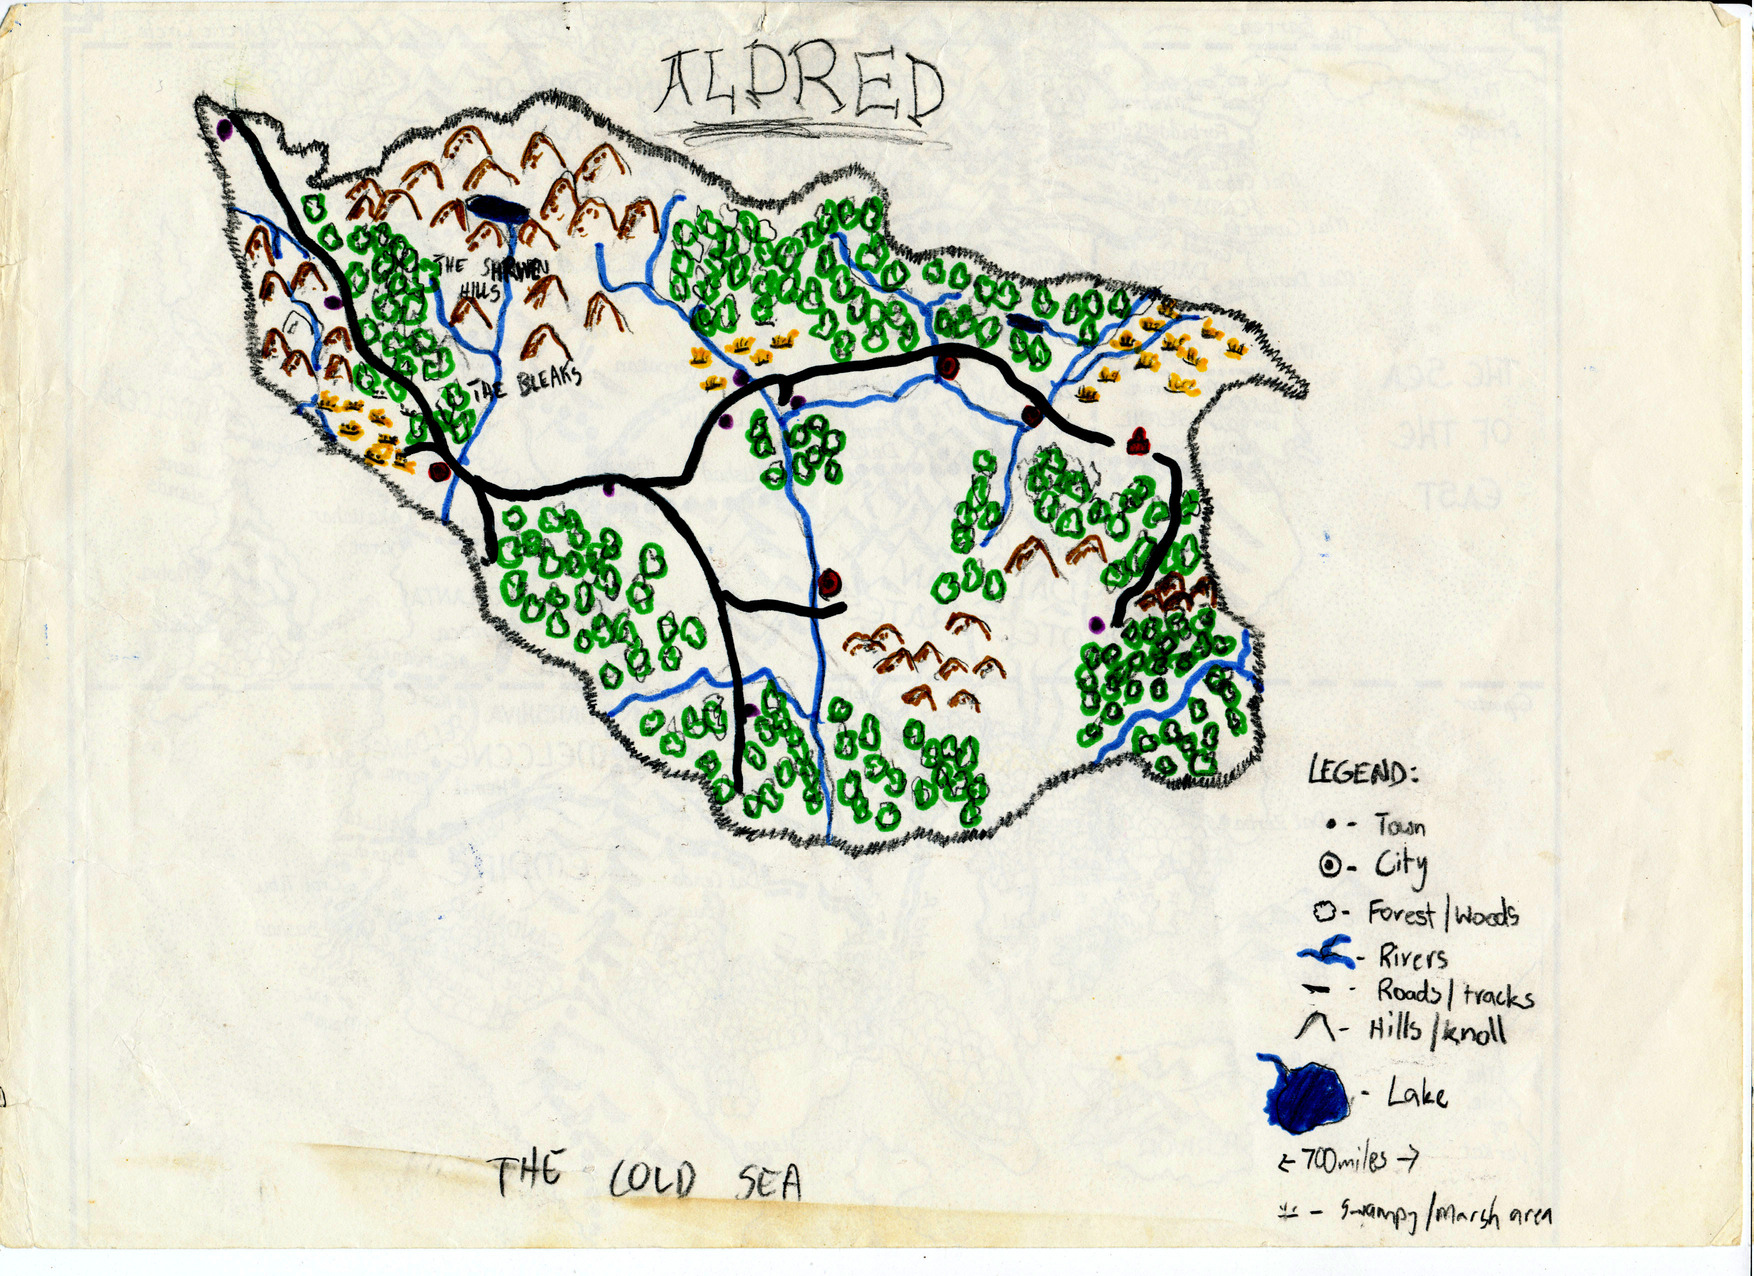 ALDRED
THE
HILLS
THE BLEAKS
THE COLD SEA
LEGEND:
- Town
- City
- Forest/Woods
- Rivers
- Roads/tracks
- Hills/knoll
- Lake
← 700miles →
- Swampy/Marsh area